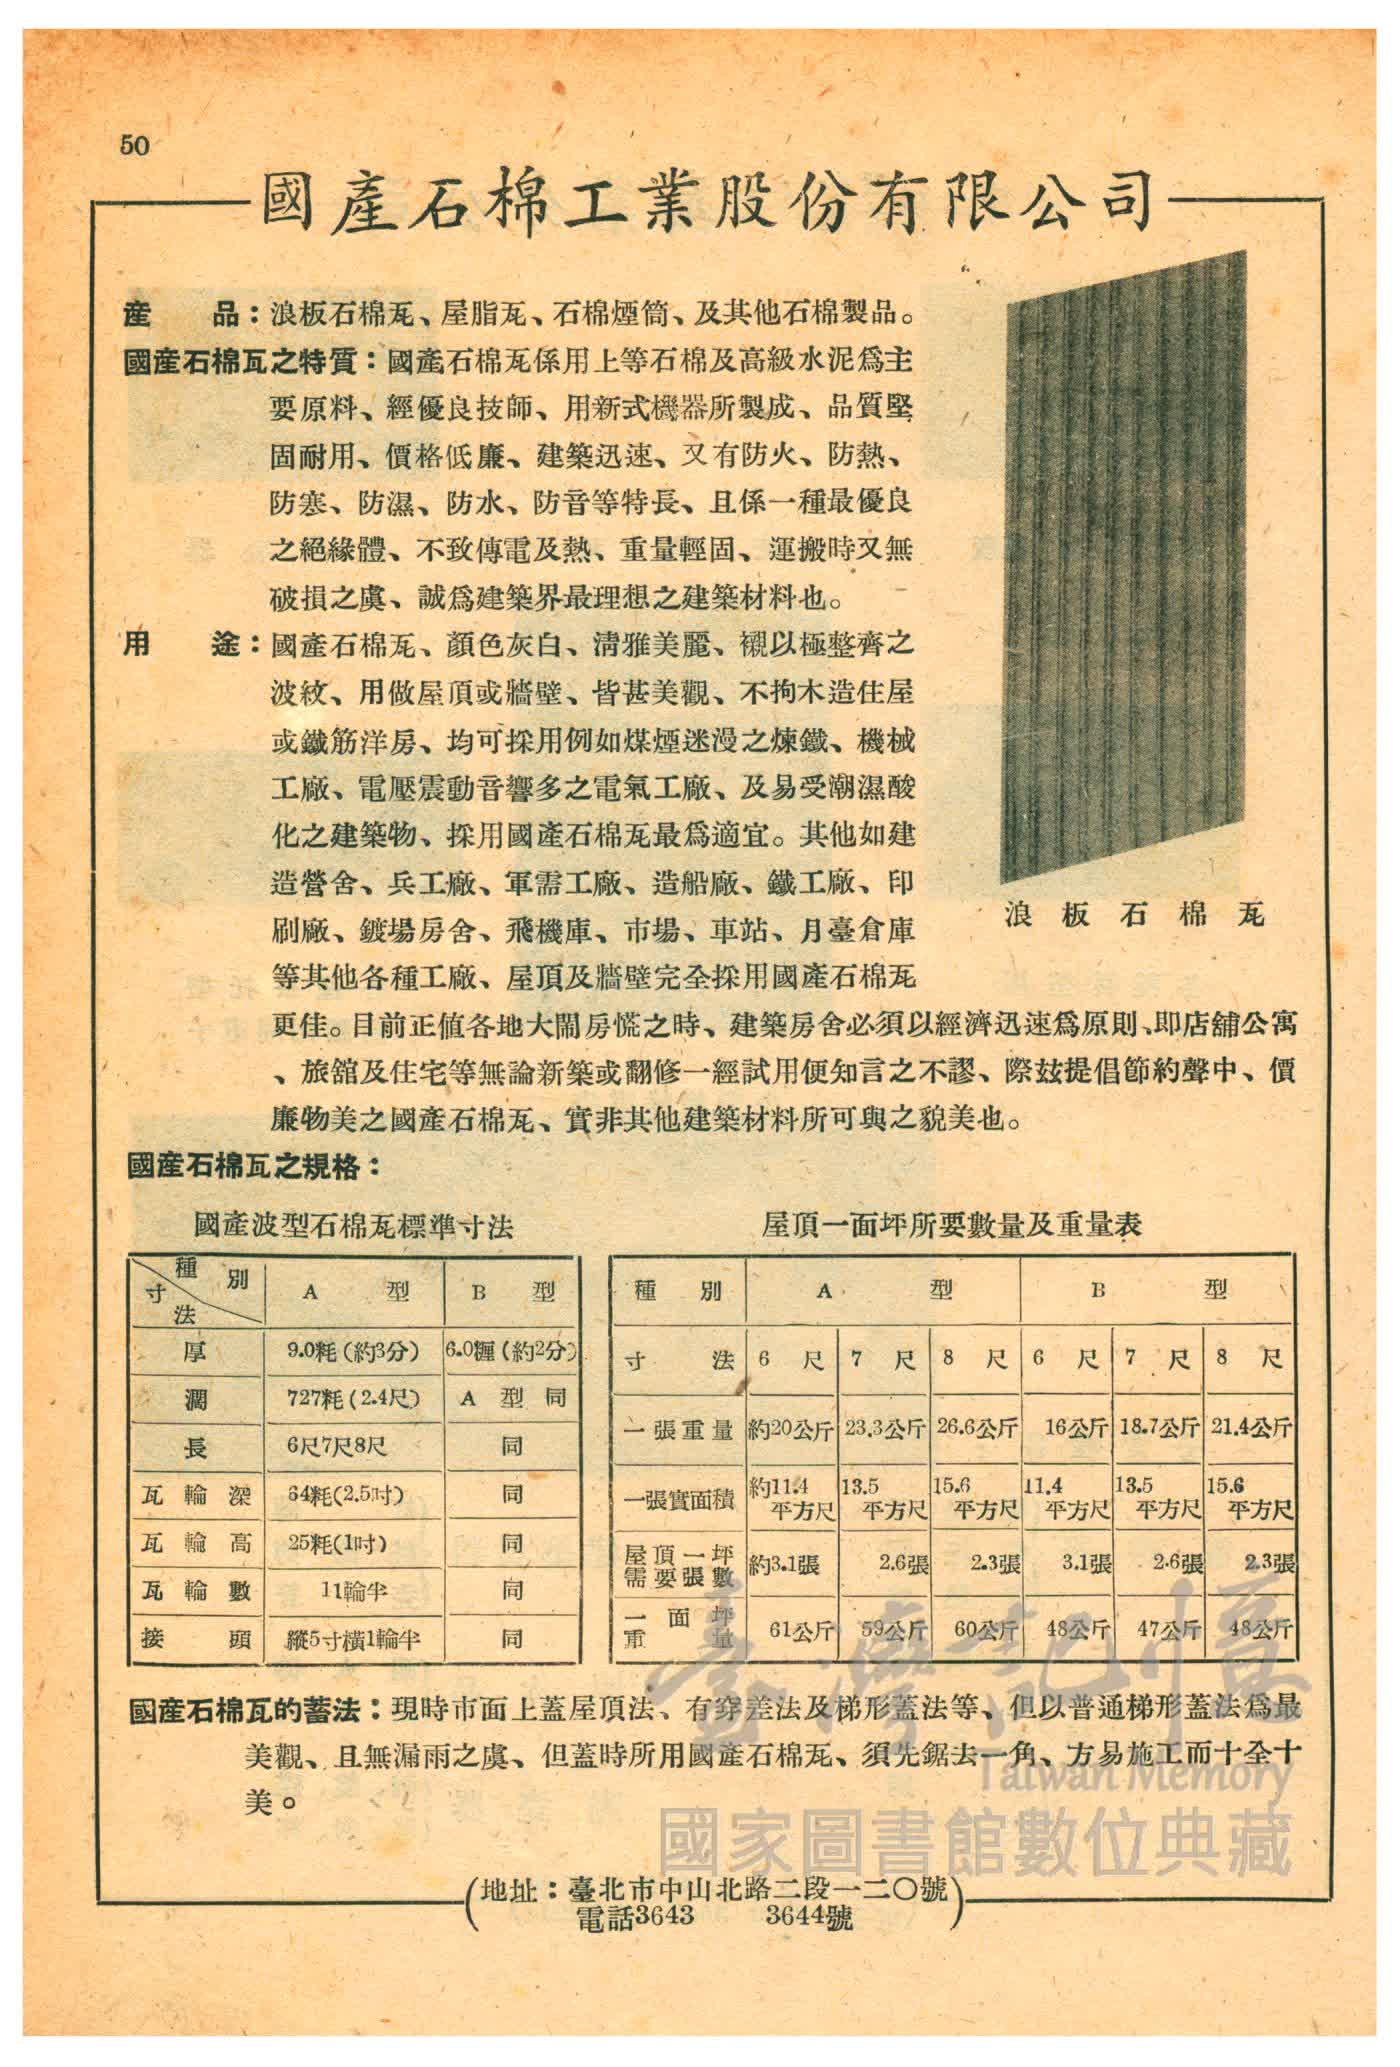 50
國產石棉工業股份有限公司
産　　品：浪板石棉瓦、屋脂瓦、石棉煙筒、及其他石棉製品。
國産石棉瓦之特質：國產石棉瓦係用上等石棉及高級水泥爲主
要原料、經優良技師、用新式機器所製成、品質堅
固耐用、價格低廉、建築迅速、又有防火、防熱、
防塞、防濕、防水、防音等特長、且係一種最優良
之絕緣體、不致傳電及熱、重量輕固、運搬時又無
破損之虞、誠爲建築界最理想之建築材料也。
用　　途：國產石棉瓦、顏色灰白、淸雅美麗、襯以極整齊之
波紋、用做屋頂或牆壁、皆甚美觀、不拘木造住屋
或鐵筋洋房、均可採用例如煤煙迷漫之煉鐵、機械
工廠、電壓震動音響多之電氣工廠、及易受潮濕酸
化之建築物、採用國產石棉瓦最爲適宜。其他如建
造營舍、兵工廠、軍需工廠、造船廠、鐵工廠、印
刷廠、鍍場房舍、飛機庫、市場、車站、月臺倉庫
等其他各種工廠、屋頂及牆壁完全採用國產石棉瓦
更佳。目前正值各地大鬧房慌之時、建築房舍必須以經濟迅速爲原則、即店舖公寓
、旅舘及住宅等無論新築或翻修一經試用便知言之不謬、際玆提倡節約聲中、價
廉物美之國產石棉瓦、實非其他建築材料所可與之貌美也。
浪板石棉瓦
國産石棉瓦之規格：
國產波型石棉瓦標準寸法
種別 寸法　A　型　B　型
厚　9.0粍(約3分)　6.0糎(約2分)
濶　727粍(2.4尺)　A　型　同
長　6尺7尺8尺　同
瓦輪深　64粍(2.5吋)　同
瓦輪高　25粍(1吋)　同
瓦輪數　11輪半　同
接頭　縱5寸橫1輪半　同
屋頂一面坪所要數量及重量表
種別　A　型　B　型
寸法　6尺　7尺　8尺　6尺　7尺　8尺
一張重量　約20公斤　23.3公斤　26.6公斤　16公斤　18.7公斤　21.4公斤
一張實面積　約11.4平方尺　13.5平方尺　15.6平方尺　11.4平方尺　13.5平方尺　15.6平方尺
屋頂一坪需要張數　約3.1張　2.6張　2.3張　3.1張　2.6張　2.3張
一面坪重量　61公斤　59公斤　60公斤　48公斤　47公斤　48公斤
國産石棉瓦的蓄法：現時市面上蓋屋頂法、有穿差法及梯形蓋法等、但以普通梯形蓋法爲最
美觀、且無漏雨之虞、但蓋時所用國產石棉瓦、須先鋸去一角、方易施工而十全十
美。
臺灣記憶
Taiwan Memory
國家圖書館數位典藏
(地址：臺北市中山北路二段一二〇號)
電話3643　3644號